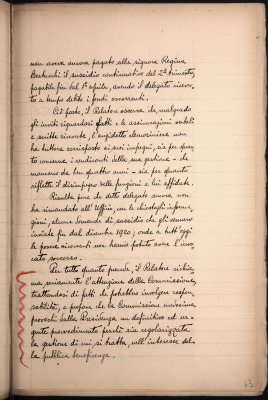 non aveva ancora pagato alla signora Regina
Bertocchi il sussidio continuativo del 2º trimestre,
pagabile fin dal 1º aprile, avendo il delegato ricevu-
to a tempo debito i fondi occorrenti.
Ciò posto, il Relatore osserva che, malgrado
gli inviti riguardosi fatti e le assicurazioni verbali
e scritte ricevute, l'anzidetto elemosiniere non
ha tuttora corrisposto ai suoi impegni, sia per quan-
to concerne i rendiconti della sua gestione - che
mancano da ben quattro anni - sia per quanto
riflette il disimpegno delle funzioni a lui affidate.
Risulta pure che detto delegato ancora non
ha rimandato all'Ufficio, con le chiestegli informa-
zioni, alcune domande di sussidio che gli vennero
inviate fin dal dicembre 1920; onde a tutt'oggi
le povere ricorrenti non hanno potuto avere l'invo-
cato soccorso.
Per tutto quanto precede, il Relatore richia-
ma seriamente l'attenzione della Commissione,
trattandosi di fatti che potrebbero involgere respon-
sabilità, e propone che la Commissione medesima
provochi dalla Presidenza un definitivo ed ur-
gente provvedimento perchè sia regolarizzata
la gestione di cui si tratta, nell'interesse del-
la pubblica beneficenza.